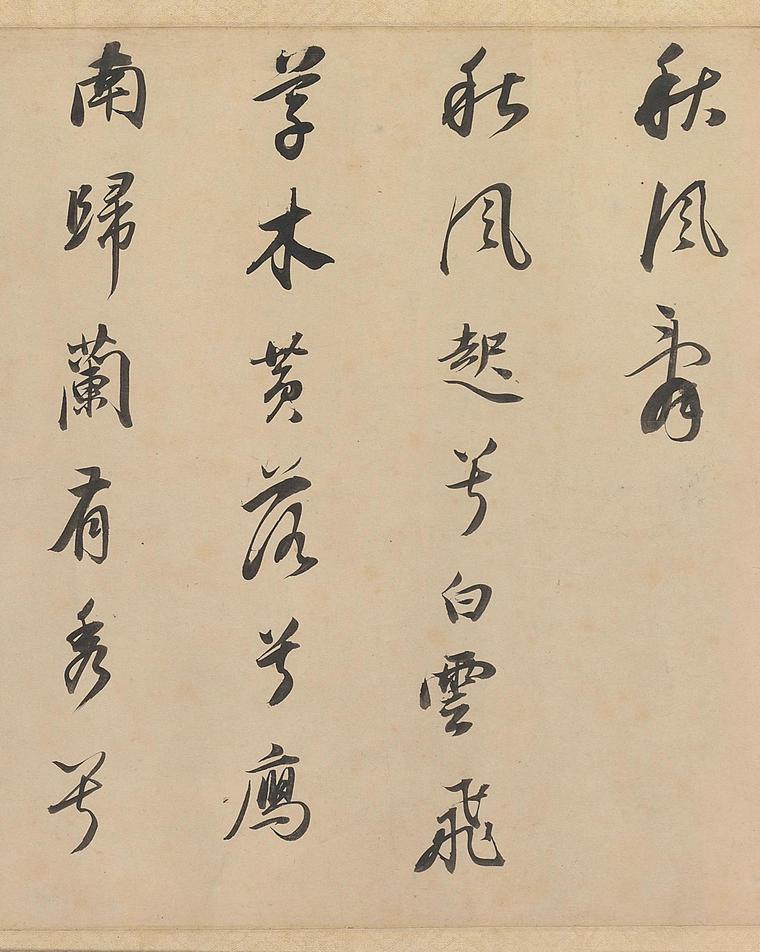 秋風辭
秋風起兮白雲飛
草木黃落兮鴈
南歸蘭有秀兮